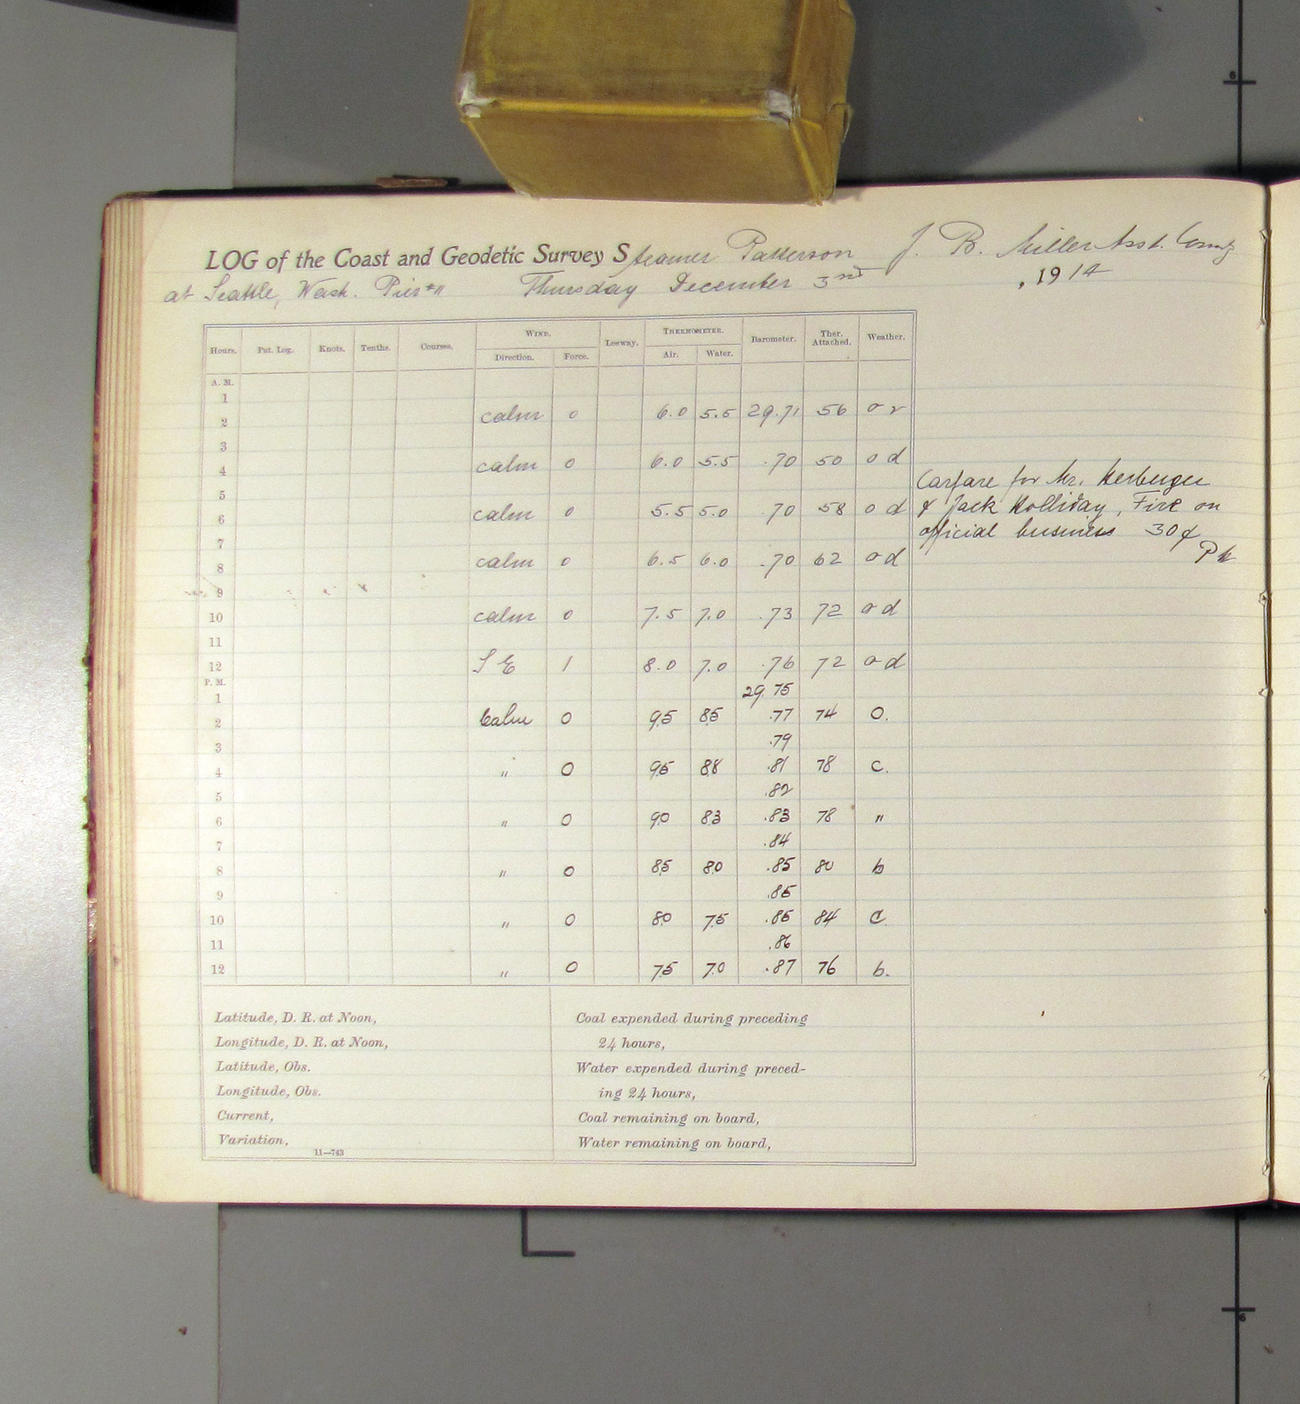 LOG of the Coast and Geodetic Survey Steamer Patterson J. B. Miller Asst. Comdg
at Seattle, Wash. Pier #11 Thursday December 3rd, 1914
WIND. THERMOMETER.
Hours. Pat. Log. Knots. Tenths. Courses. Direction. Force. Leeway. Air. Water. Barometer. Ther. Attached. Weather.
A. M.
1
2 calm 0 6.0 5.5 29.71 56 o r
3
4 calm 0 6.0 5.5 .70 50 o d
5
6 calm 0 5.5 5.0 .70 58 o d
7
8 calm 0 6.5 6.0 .70 62 o d
9
10 calm 0 7.5 7.0 .73 72 o d
11
12 S E 1 8.0 7.0 .76 72 o d
P. M.
1 29.75
2 Calm 0 9.5 8.5 .77 74 O.
3 .79
4 " 0 9.5 8.8 .81 78 C.
5 .82
6 " 0 9.0 8.3 .83 78 "
7 .84
8 " 0 8.5 8.0 .85 80 b
9 .85
10 " 0 8.0 7.5 .85 84 C.
11 .86
12 " 0 7.5 7.0 .87 76 b.
Carfare for Mr.
& Jack Holliday, Fire on
official business 30¢
Latitude, D. R. at Noon,
Longitude, D. R. at Noon,
Latitude, Obs.
Longitude, Obs.
Current,
Variation,
11—743
Coal expended during preceding
24 hours,
Water expended during preced-
ing 24 hours,
Coal remaining on board,
Water remaining on board,
6
6